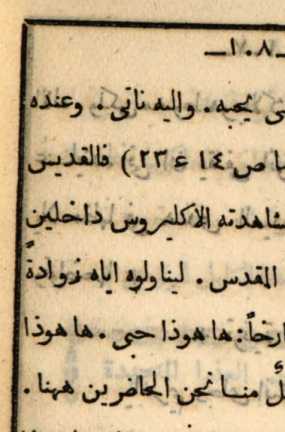 ـ١٠٨ـ
يحبه . واليه ناتى . وعنده
ص ١٤ ع ٢٣ ) فالقديس
شاهدته الاكليروس داخلين
المقدس . ليناولوه اياه زوادةً
ارخاً : ها هوذا حبى . ها هوذا
منا نحن الحاضرين ههنا .